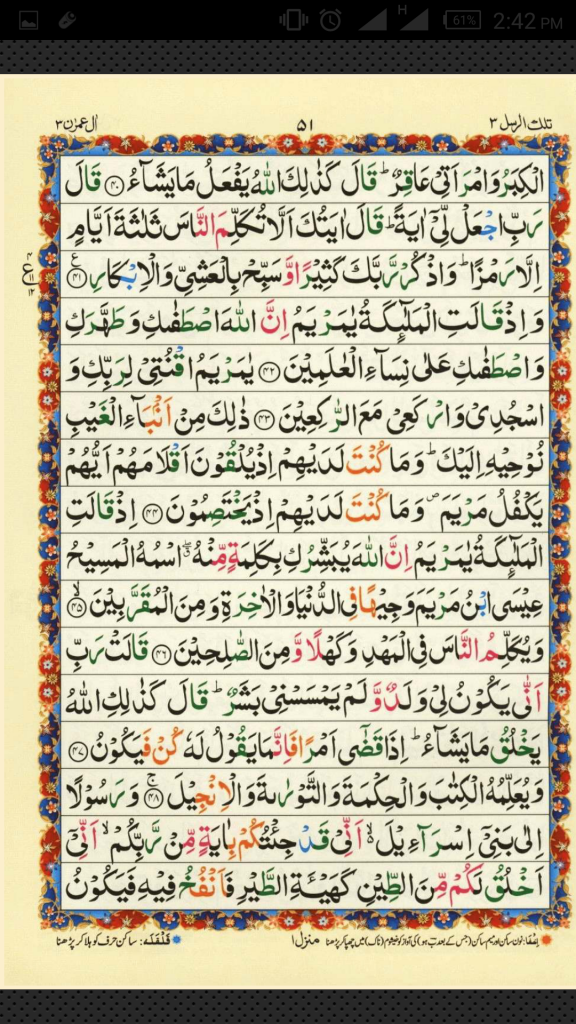 H 61% 2:42 PM
تلك الرسل ٣
٥١
اٰل عمرٰن ٣
الْكِبَرُ وَامْرَاَتِىْ عَاقِرٌ ؕ قَالَ كَذٰلِكَ اللّٰهُ يَفْعَلُ مَا يَشَآءُ ﴿۴۰﴾ قَالَ
رَبِّ اجْعَلْ لِّىْۤ اٰيَةً ؕ قَالَ اٰيَتُكَ اَلَّا تُكَلِّمَ النَّاسَ ثَلٰثَةَ اَيَّامٍ
اِلَّا رَمْزًا ؕ وَاذْكُرْ رَّبَّكَ كَثِيْرًا وَّسَبِّحْ بِالْعَشِىِّ وَالْاِبْكَارِ ﴿۴۱﴾
وَاِذْ قَالَتِ الْمَلٰٓئِكَةُ يٰمَرْيَمُ اِنَّ اللّٰهَ اصْطَفٰىكِ وَطَهَّرَكِ
وَاصْطَفٰىكِ عَلٰى نِسَآءِ الْعٰلَمِيْنَ ﴿۴۲﴾ يٰمَرْيَمُ اقْنُتِىْ لِرَبِّكِ وَ
اسْجُدِىْ وَارْكَعِىْ مَعَ الرّٰكِعِيْنَ ﴿۴۳﴾ ذٰلِكَ مِنْ اَنْۢبَآءِ الْغَيْبِ
نُوْحِيْهِ اِلَيْكَ ؕ وَمَا كُنْتَ لَدَيْهِمْ اِذْ يُلْقُوْنَ اَقْلَامَهُمْ اَيُّهُمْ
يَكْفُلُ مَرْيَمَ ۪ وَمَا كُنْتَ لَدَيْهِمْ اِذْ يَخْتَصِمُوْنَ ﴿۴۴﴾ اِذْ قَالَتِ
الْمَلٰٓئِكَةُ يٰمَرْيَمُ اِنَّ اللّٰهَ يُبَشِّرُكِ بِكَلِمَةٍ مِّنْهُ ۖۗ اسْمُهُ الْمَسِيْحُ
عِيْسَى ابْنُ مَرْيَمَ وَجِيْهًا فِى الدُّنْيَا وَالْاٰخِرَةِ وَمِنَ الْمُقَرَّبِيْنَ ﴿۴۵﴾ۙ
وَيُكَلِّمُ النَّاسَ فِى الْمَهْدِ وَكَهْلًا وَّمِنَ الصّٰلِحِيْنَ ﴿۴۶﴾ قَالَتْ رَبِّ
اَنّٰى يَكُوْنُ لِىْ وَلَدٌ وَّلَمْ يَمْسَسْنِىْ بَشَرٌ ؕ قَالَ كَذٰلِكِ اللّٰهُ
يَخْلُقُ مَا يَشَآءُ ؕ اِذَا قَضٰٓى اَمْرًا فَاِنَّمَا يَقُوْلُ لَهٗ كُنْ فَيَكُوْنُ ﴿۴۷﴾
وَيُعَلِّمُهُ الْكِتٰبَ وَالْحِكْمَةَ وَالتَّوْرٰىةَ وَالْاِنْجِيْلَ ﴿۴۸﴾ۚ وَرَسُوْلًا
اِلٰى بَنِىْۤ اِسْرَآءِيْلَ ۙ اَنِّىْ قَدْ جِئْتُكُمْ بِاٰيَةٍ مِّنْ رَّبِّكُمْ ۙ اَنِّىْۤ
اَخْلُقُ لَكُمْ مِّنَ الطِّيْنِ كَهَيْئَةِ الطَّيْرِ فَاَنْفُخُ فِيْهِ فَيَكُوْنُ
منزل ١
قلقله: ساکن حرف کو ہلا کر پڑھنا